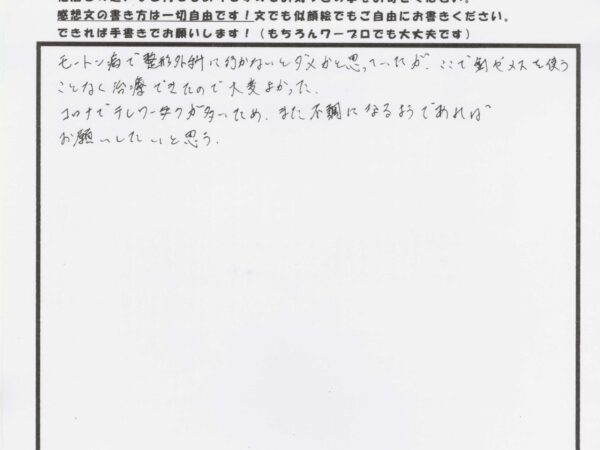 感想文の書き方は一切自由です！文でも似顔絵でもご自由にお書きください。
できれば手書きでお願いします！（もちろんワープロでも大丈夫です）
モートン病で整形外科に行かないとダメかと思っていたが、ここで とメスを使う
ことなく治療できたので大変よかった。
コロナでテレワークが多いため、また不調になるようであれば
お願いしたいと思う。